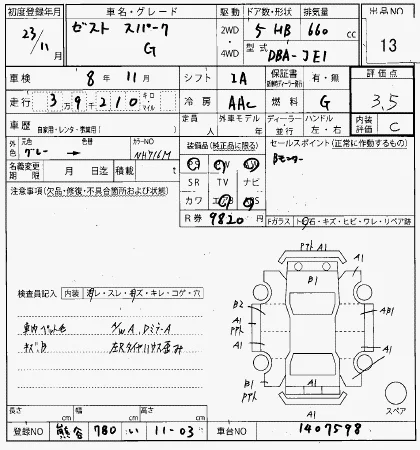 初度登録年月 車名・グレード 駆動 ドア数・形状 排気量 出品NO
23/11 ゼスト スパーク G 2WD 4WD 5 HB 660 cc 13
型式 DBA-JE1
車検 8年 11月 シフト IA 保証書 有・無 評価点
走行 3 9 2 1 0 キロ マイル 冷房 AAC 燃料 G 3.5
車歴 自家用・レンタ・事業用( ) 定員 人 外車モデル 年 ディーラー 並行 ハンドル 左・右 内装評価 C
外色 元色 グレー 色替 カラーNO NH716M
装備品(純正品に限る) セールスポイント(正常に作動するもの)
名義変更期限 月 日 積載 t
PS PW AW Bモニター
SR TV ナビ
注意事項(欠品・修復・不具合箇所および状態)
カワ エアB ABS
R券 9820 円
Fガラス ト石・キズ・ヒビ・ワレ・リペア跡
A1
B1 A1
検査員記入 内装 汚レ・スレ・キズ・キレ・コゲ・穴
B2 A1 AB1
A1
車内ペット毛 S/W A, DミラーA
キズ, B 左Rタイヤハウス歪み
A1 A1
B1 A1
A1 スペア
長さ cm 幅 cm 高さ cm
登録NO 熊谷 780 い 11-03 車台NO 1407598